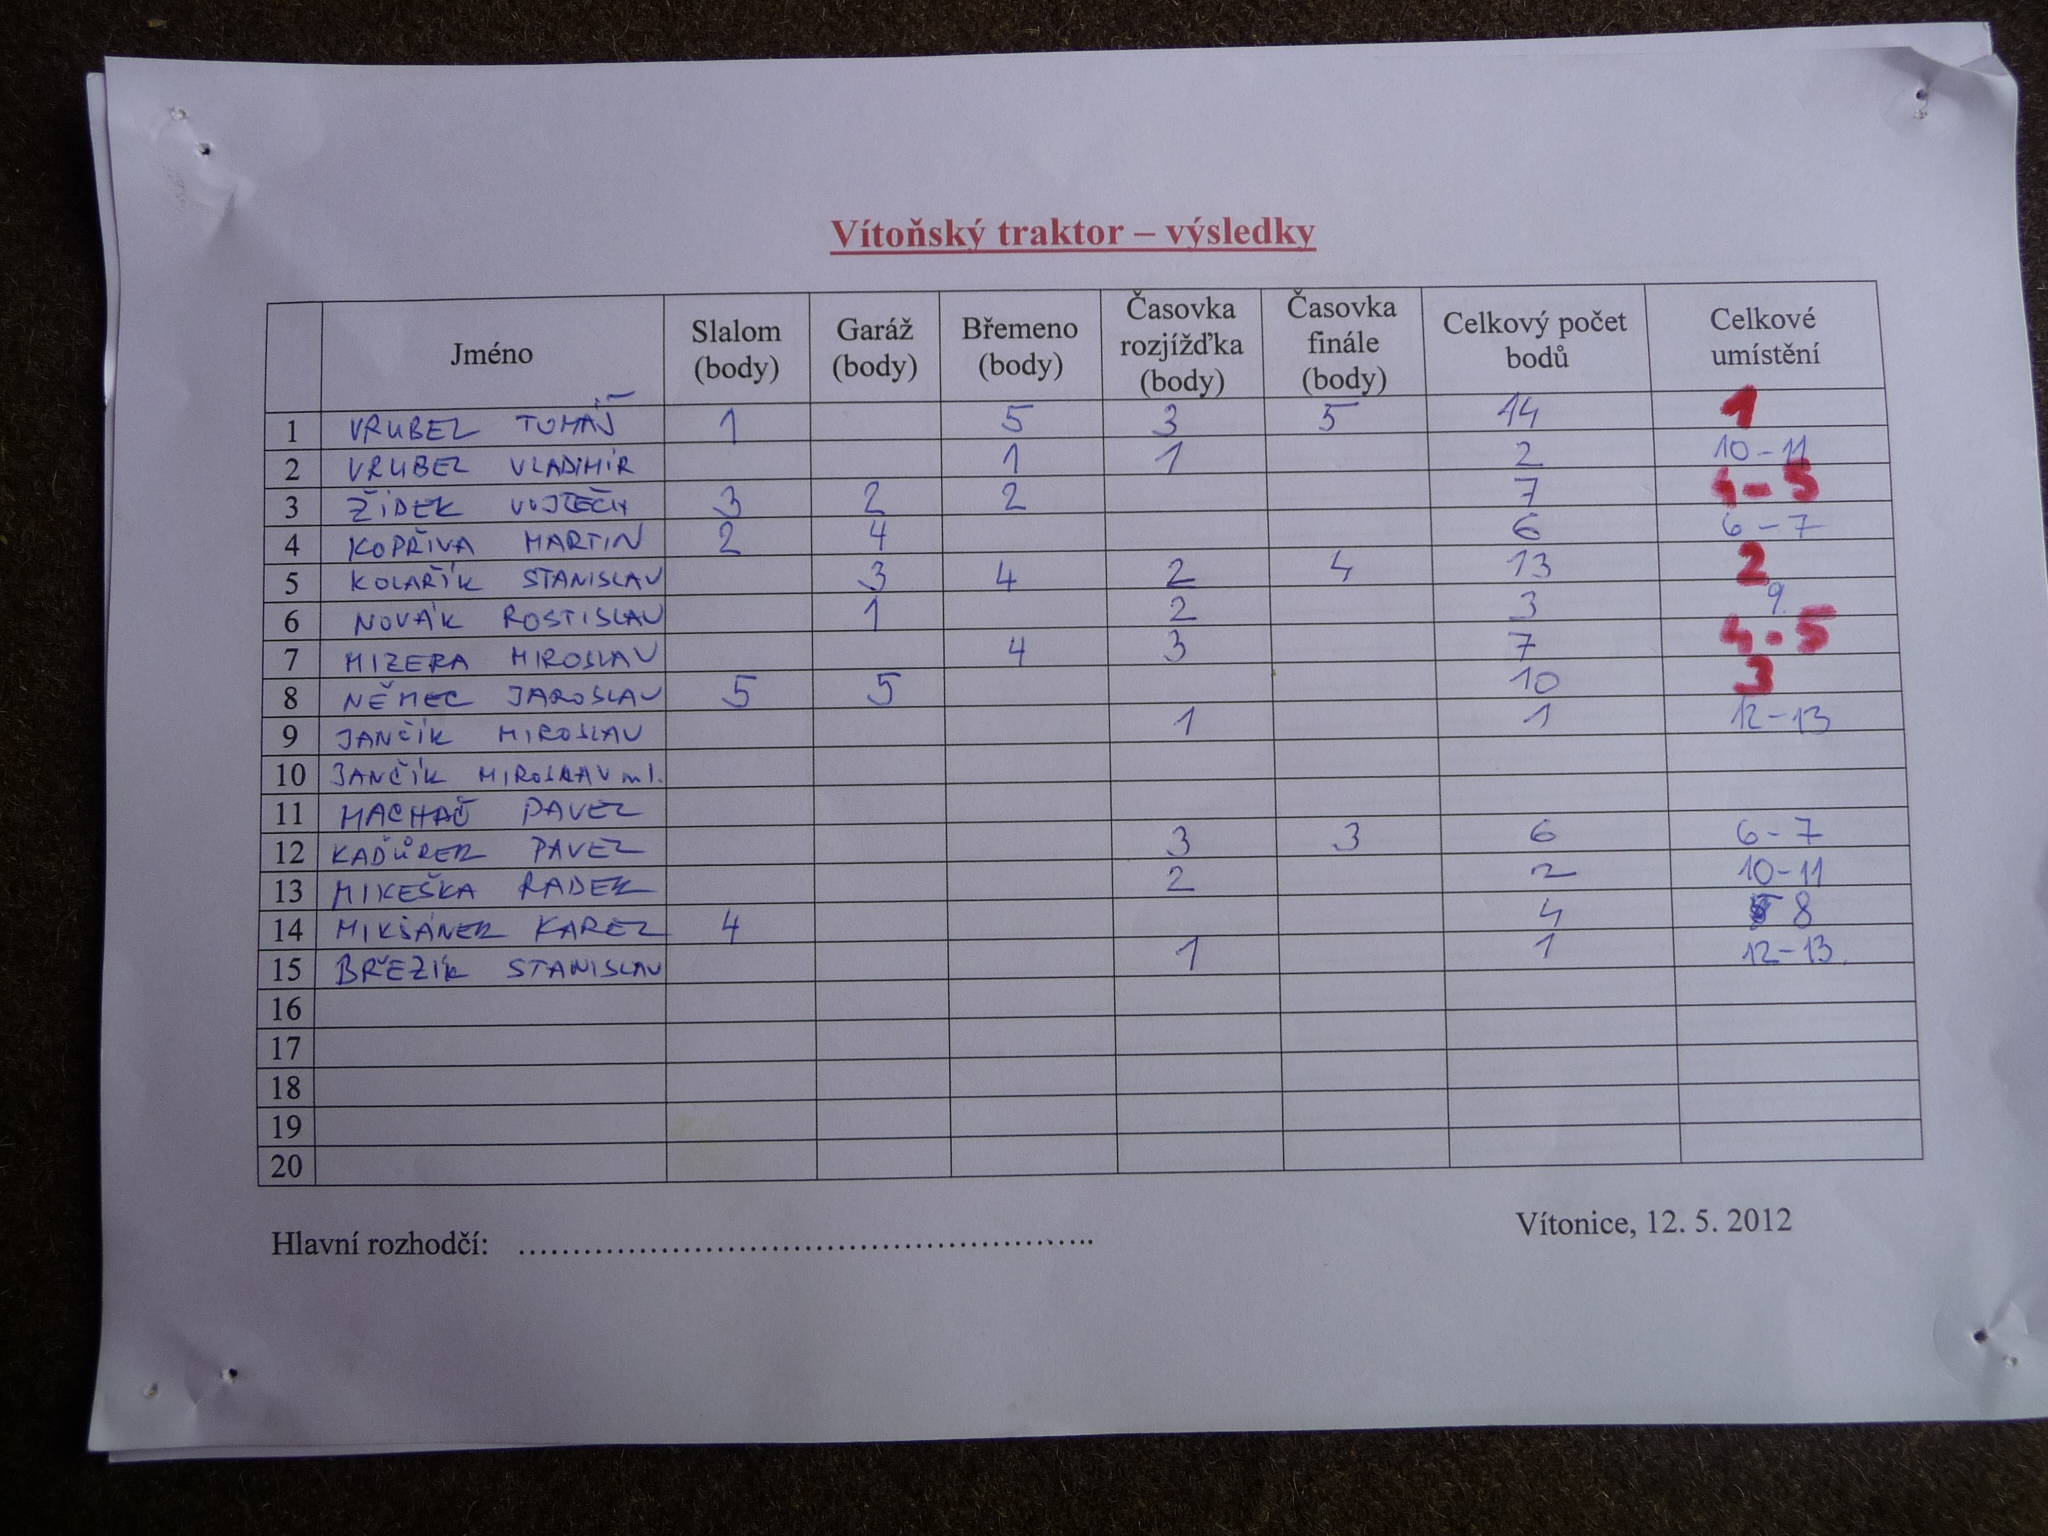 Vítoňský traktor – výsledky
Jméno Slalom (body) Garáž (body) Břemeno (body) Časovka rozjížďka (body) Časovka finále (body) Celkový počet bodů Celkové umístění
1 VRUBEL TOMÁŠ 1 5 3 5 14 1
2 VRUBEL VLADIMÍR 1 1 2 10-11
3 ŽÍDEK VOJTĚCH 3 2 2 7 4-5
4 KOPŘIVA MARTIN 2 4 6 6-7
5 KOLAŘÍK STANISLAV 3 4 2 4 13 2
6 NOVÁK ROSTISLAV 1 2 3 9.
7 MIZERA MIROSLAV 4 3 7 4-5
8 NĚMEC JAROSLAV 5 5 10 3
9 JANČÍK MIROSLAV 1 1 12-13
10 JANČÍK MIROSLAV ml.
11 MACHAČ PAVEL
12 PAVEL 3 3 6 6-7
13 MIKEŠKA RADEK 2 2 10-11
14 MIKŠÁNEK KAREL 4 4 8
15 BŘEZÍK STANISLAV 1 1 12-13.
16
17
18
19
20
Hlavní rozhodčí: ……………………………………………………..
Vítonice, 12. 5. 2012